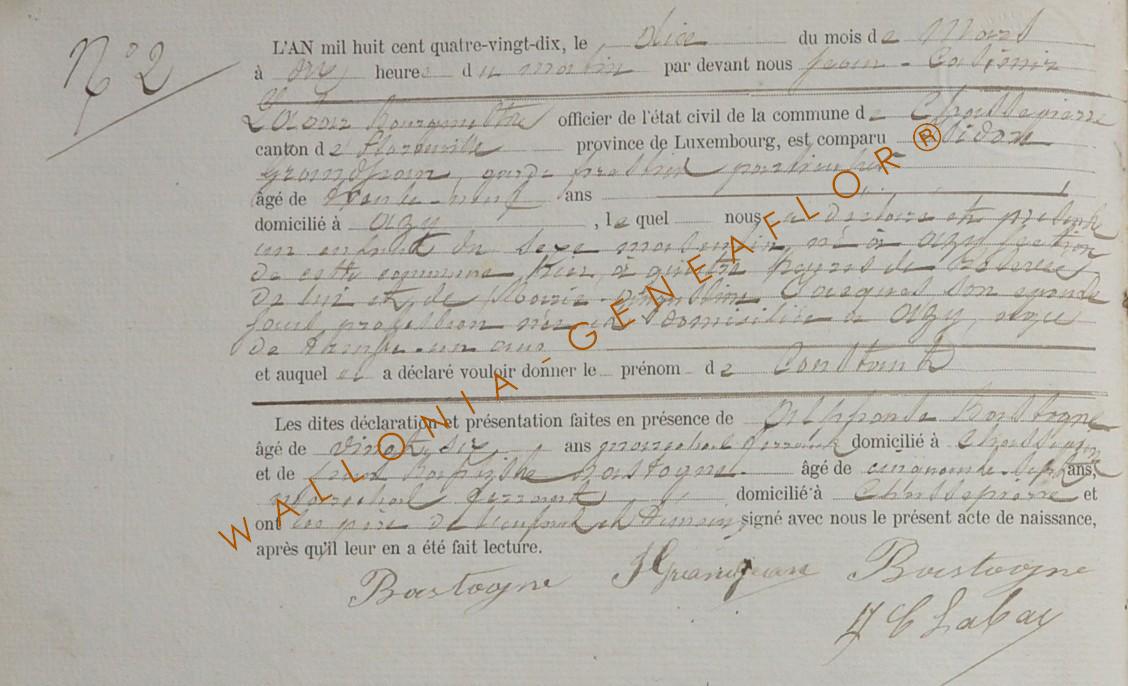 N° 2
L'AN mil huit cent quatre-vingt-dix, le dix du mois de Mars
à heures du matin par devant nous Jean - Casimir
bourgmestre officier de l'état civil de la commune de Chassepierre
canton de Florenville province de Luxembourg, est comparu
Grandjean, garde particulier
âgé de trente-neuf ans
domicilié à Azy, lequel nous a déclaré et présenté
un enfant du sexe masculin, né à Azy section
de cette commune, hier, à quatre heures de relevée
de lui et de Marie Jacques son épouse
sans profession née et domiciliée à Azy, âgée
de trente-un ans
et auquel il a déclaré vouloir donner le prénom de Constant
Les dites déclaration et présentation faites en présence de Alphonse Bastogne
âgé de vingt six ans maréchal ferrant domicilié à Chassepierre
et de Jean Baptiste Bastogne âgé de cinquante-sept ans,
maréchal ferrant domicilié à Chassepierre et
ont les père de l'enfant et témoins signé avec nous le présent acte de naissance,
après qu'il leur en a été fait lecture.
Bastogne Grandjean Bastogne
WALLONIA - GENEAFLOR ®